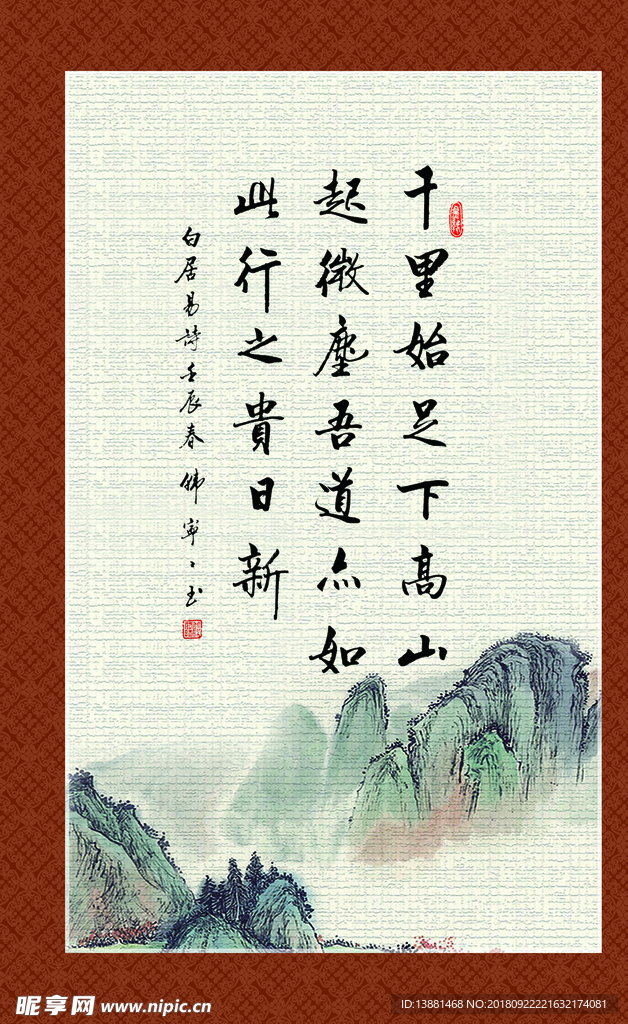 千里始足下高山
起微塵吾道亦如
此行之貴日新
白居易詩壬辰春
昵享网 www.nipic.cn
ID:13881468 NO:20180922221632174081